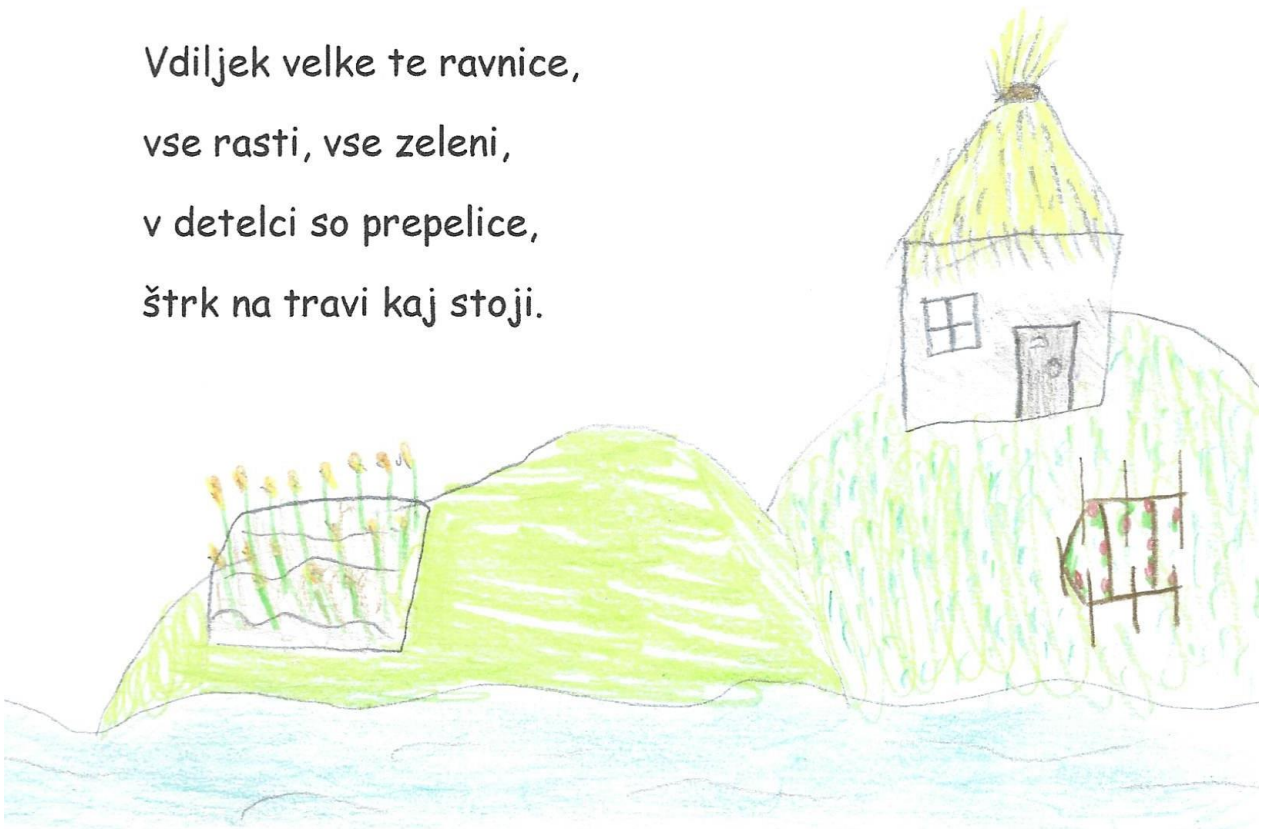 Vdiljek velke te ravnice,
vse rasti, vse zeleni,
v detelci so prepelice,
štrk na travi kaj stoji.